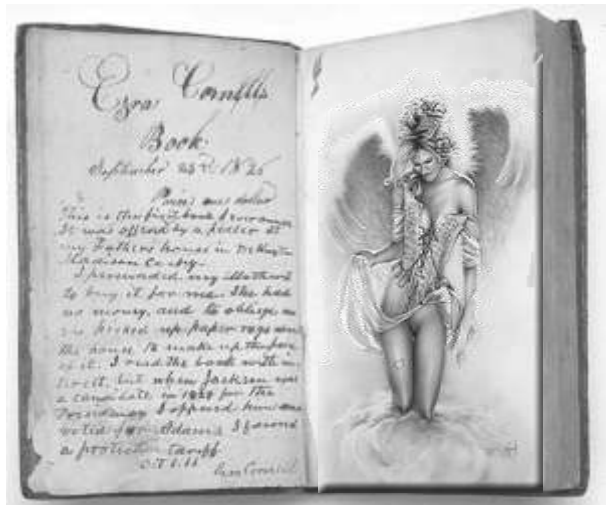 Ezra Cornell's
Book
September 23rd 1826
Price one dollar
This is the first book I ever owned
It was offered by a pedler at
my Fathers house in DeRuyter
Madison Co
I persuaded my Mother
to buy it for me. She had
no money, and to oblige me
she picked up paper rags in
the house to make up the price
of it. I read the book with in
but when Jackson was
a candidate in 1828 for the
Presidency I opposed him and
voted for Adams. I found
a protection tariff
Ezra Cornell